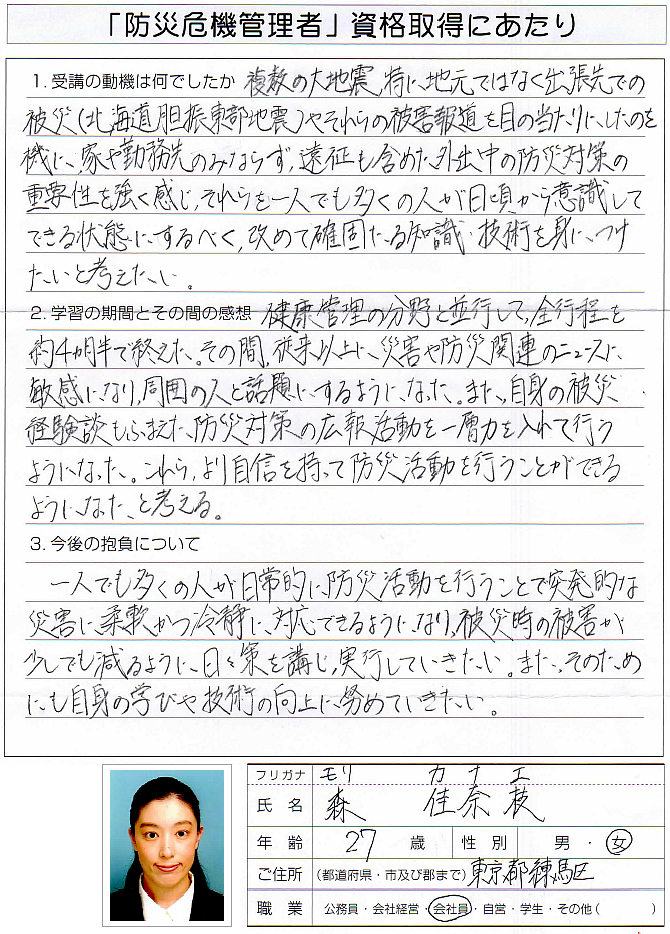 「防災危機管理者」資格取得にあたり
1. 受講の動機は何でしたか 複数の大地震、特に地元ではなく出張先での
被災(北海道胆振東部地震)やそれらの被害報道を目の当たりにしたのを
機に、家や勤務先のみならず、遠征も含めた外出中の防災対策の
重要性を強く感じ、それらを一人でも多くの人が日頃から意識して
できる状態にするべく、改めて確固たる知識・技術を身につけ
たいと考えたい。
2. 学習の期間とその間の感想 健康管理の分野と並行して、全行程を
約4カ月半で終えた。その間、従来以上に災害や防災関連のニュースに
敏感になり、周囲の人と話題にするようになった。また、自身の被災
経験談もふまえた防災対策の広報活動を一層力を入れて行う
ようになった。これら、より自信を持って防災活動を行うことができる
ようになったと考える。
3. 今後の抱負について
一人でも多くの人が日常的に防災活動を行うことで突発的な
災害に柔軟かつ冷静に対応できるようになり、被災時の被害が
少しでも減るように、日々策を講じ、実行していきたい。また、そのため
にも自身の学びや技術の向上に努めていきたい。
フリガナ モリ カナエ
氏名 森 佳奈枝
年齢 27 歳 性別 男・女
ご住所 (都道府県・市及び郡まで) 東京都練馬区
職業 公務員・会社経営・会社員・自営・学生・その他( )